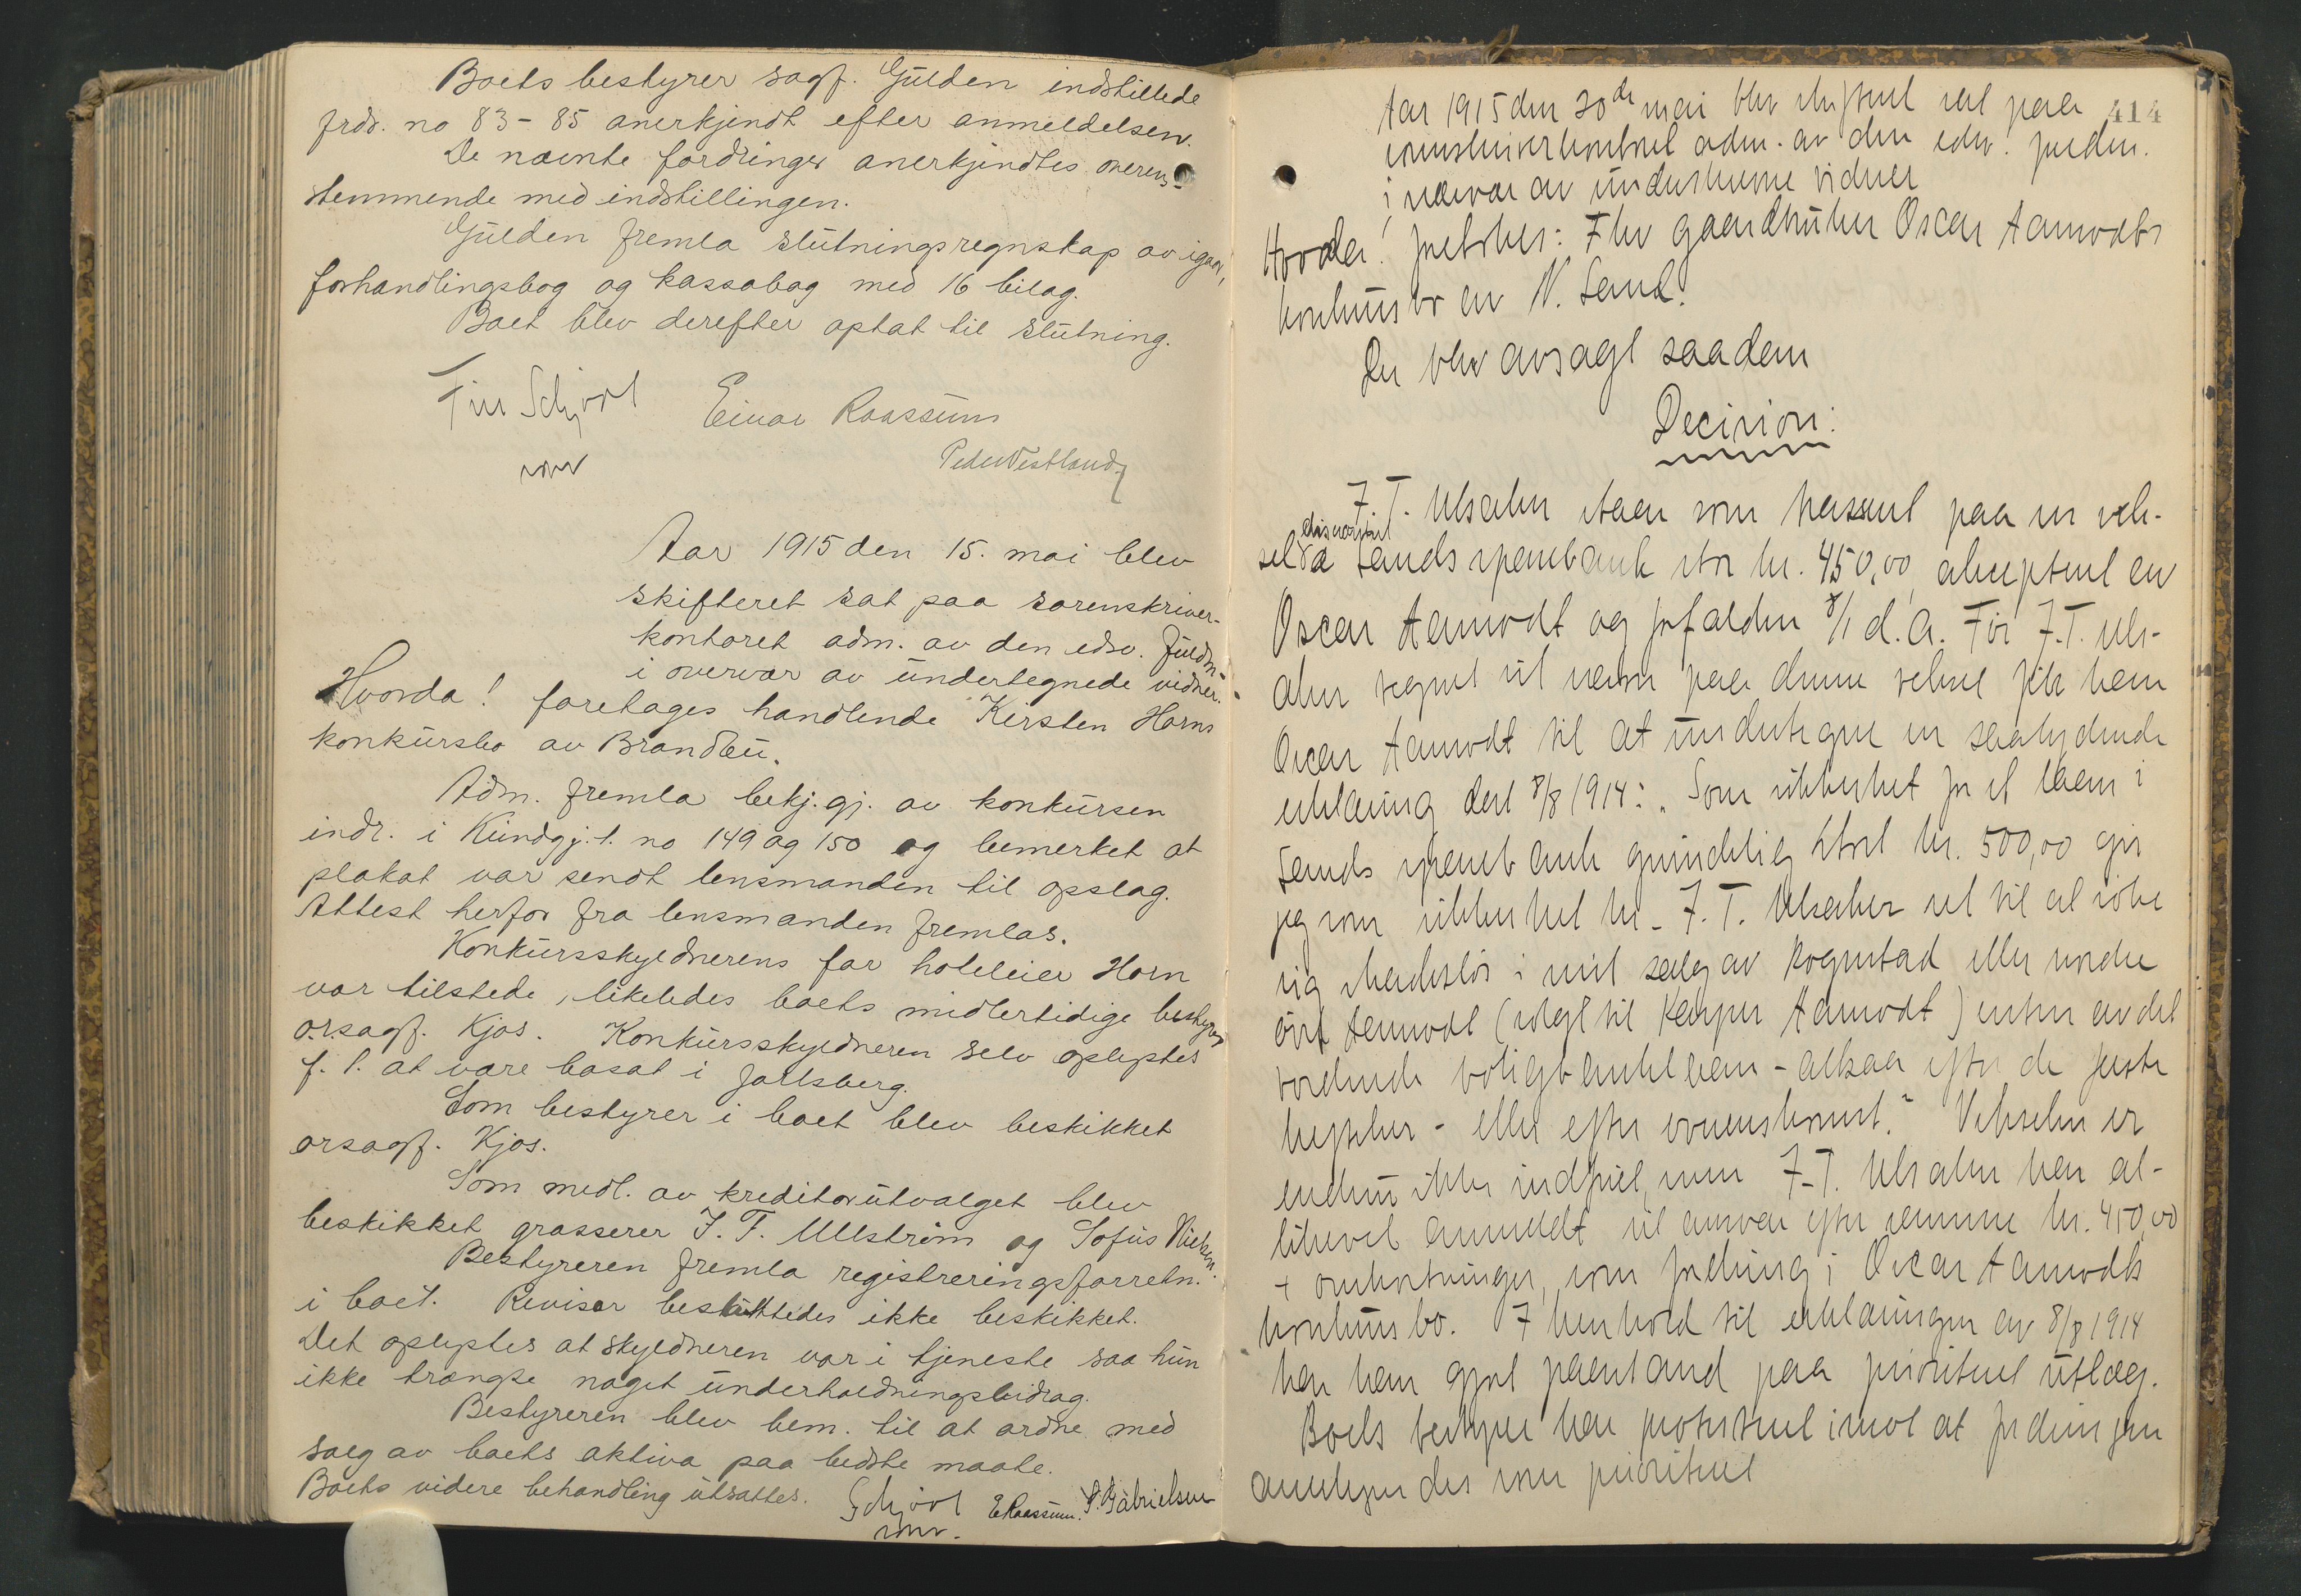 Boets bestyrer sagf. Gülden indstillede
frdr. no 83-85 anerkjendt efter anmeldelsen.
De nævnte fordringer anerkjendtes overens-
stemmende med indstillingen.
Gülden fremla slutningsregnskap av igaar,
forhandlingsbog og kassabog med 16 bilag.
Boet blev derefter optat til slutning.
Finn Schjødt Einar Raassum
Peder Vestland
Aar 1915 den 15. mai blev
skifteret sat paa sorenskriver-
kontoret adm. av den edsv. fuldm.
i overvær av undertegnede vidner.
Hvorda! foretages handlende Kirsten Horns
konkursbo av Brandbu.
Adm. fremla bekj.gj. av konkursen
indr. i Kundgj.t. no 149 og 150 og bemerket at
plakat var sendt lensmanden til opslag.
Attest herfor fra lensmanden fremlas.
Konkursskyldnerens far hoteleier Horn
var tilstede, likeledes boets midlertidige bestyrer
o.r.sagf. Kjos. Konkursskyldneren selv oplystes
f. t. at være bosat i Jarlsberg.
Som bestyrer i boet blev beskikket
orsagf. Kjos.
Som medl. av kreditorutvalget blev
beskikket grosserer J. F. Ullstrøm og Sofus Nielsen.
Bestyreren fremla registreringsforretn.
i boet. Revisor besluttedes ikke beskikket.
Det oplystes at skyldneren var i tjeneste saa hun
ikke trængte noget underholdningsbidrag.
Bestyreren blev bem. til at ordne med
salg av boets aktiva paa bedste maate.
Boets videre behandling utsattes. Schjødt E Raassum. P. Gabrielsen
414
Aar 1915 den 20de mai blev skifteret sat paa
sorenskriverkontoret adm. av den edsv. fuldm.
i nærvær av underskrevne vidner
Hvorda! foretokes: Fhv gaardbruker Oscar Aamodts
konkursbo av N. Land.
Der blev avsagt saadan
Decision:
J. T. Ulsaker staar som trassent paa en vek-
sel diskontert i Lands sparebank stor kr. 450,00 akseptert av
Oscar Aamodt og forfalden 8/1 d.a. Før J.T. Uls-
aker tegnet sit navn paa denne veksel fik han
Oscar Aamodt til at undertegne en saalydende
erklæring dat 8/8 1914: "Som sikkerhet for et laan i
Lands sparebank oprindelig stort kr. 500,00 gir
jeg som sikkerhet hr. J. T. Ulsaker ret til at søke
sig skadesløs i mit salg av Rognstad eller nordre
øvre Aamodt (solgt til Kasper Aamodt) enten av det
vordende boligbanklaan - altsaa efter de første
heftelser - eller efter overenskomst." Vekselen er
endnu ikke indfriet, men J. T. Ulsaker har al-
likevel anmeldt sit ansvar efter samme kr. 450,00
+ omkostninger, som fordring i Oscar Aamodts
konkursbo. I henhold til erklæringen av 8/8 1914
har han gjort paastand paa prioritert utlæg.
Boets bestyrer har protestert imot at fordringen
anerkjendes som prioritert